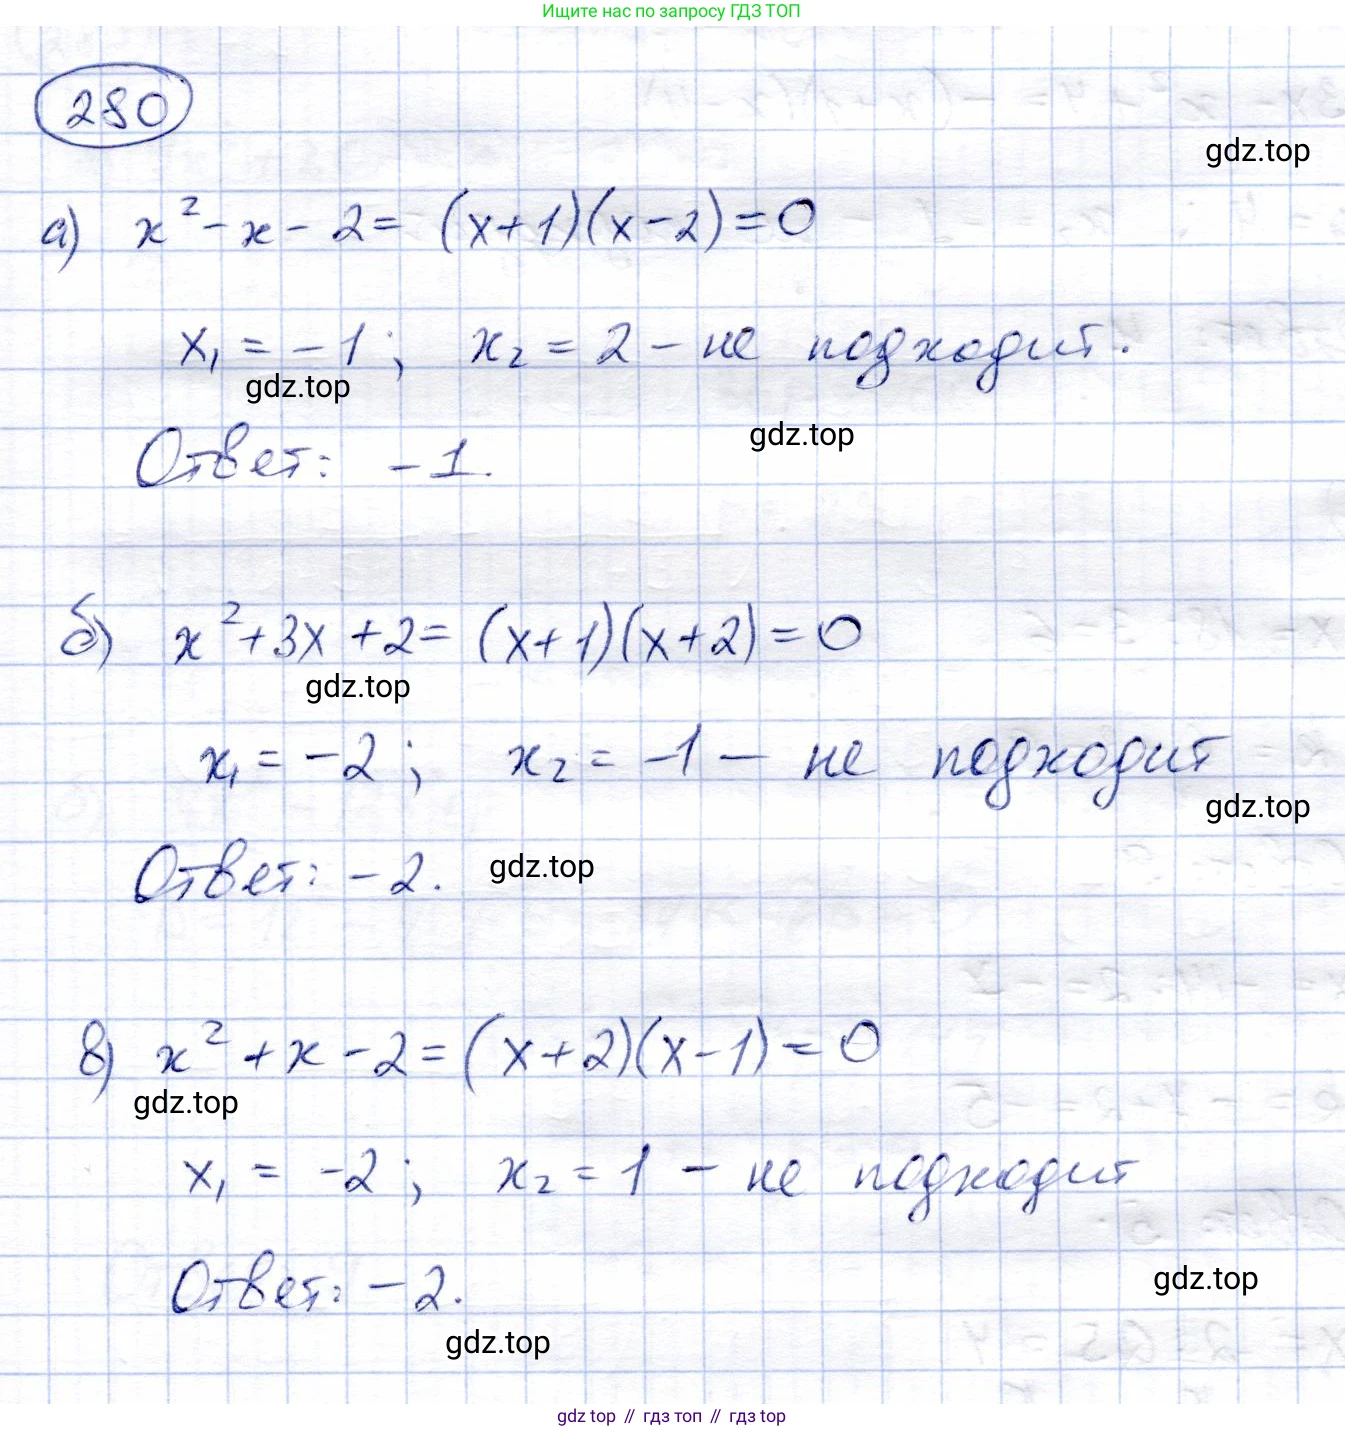 Ищите нас по запросу ГДЗ ТОП
280
gdz.top
а) x² - x - 2 = (x+1)(x-2) = 0
x₁ = -1; x₂ = 2 - не подходит.
gdz.top
gdz.top
Ответ: -1.
б) x² + 3x + 2 = (x+1)(x+2) = 0
gdz.top
x₁ = -2; x₂ = -1 - не подходит
gdz.top
Ответ: -2.
gdz.top
в) x² + x - 2 = (x+2)(x-1) = 0
gdz.top
x₁ = -2; x₂ = 1 - не подходит
gdz.top
Ответ: -2.
gdz.top
gdz top // гдз топ // гдз top